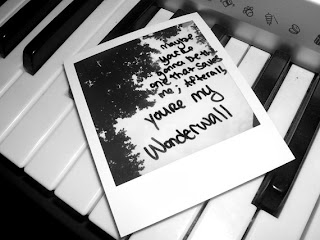 maybe
you're
gonna be the
one that saves
me; Afterall,
you're my
Wonderwall